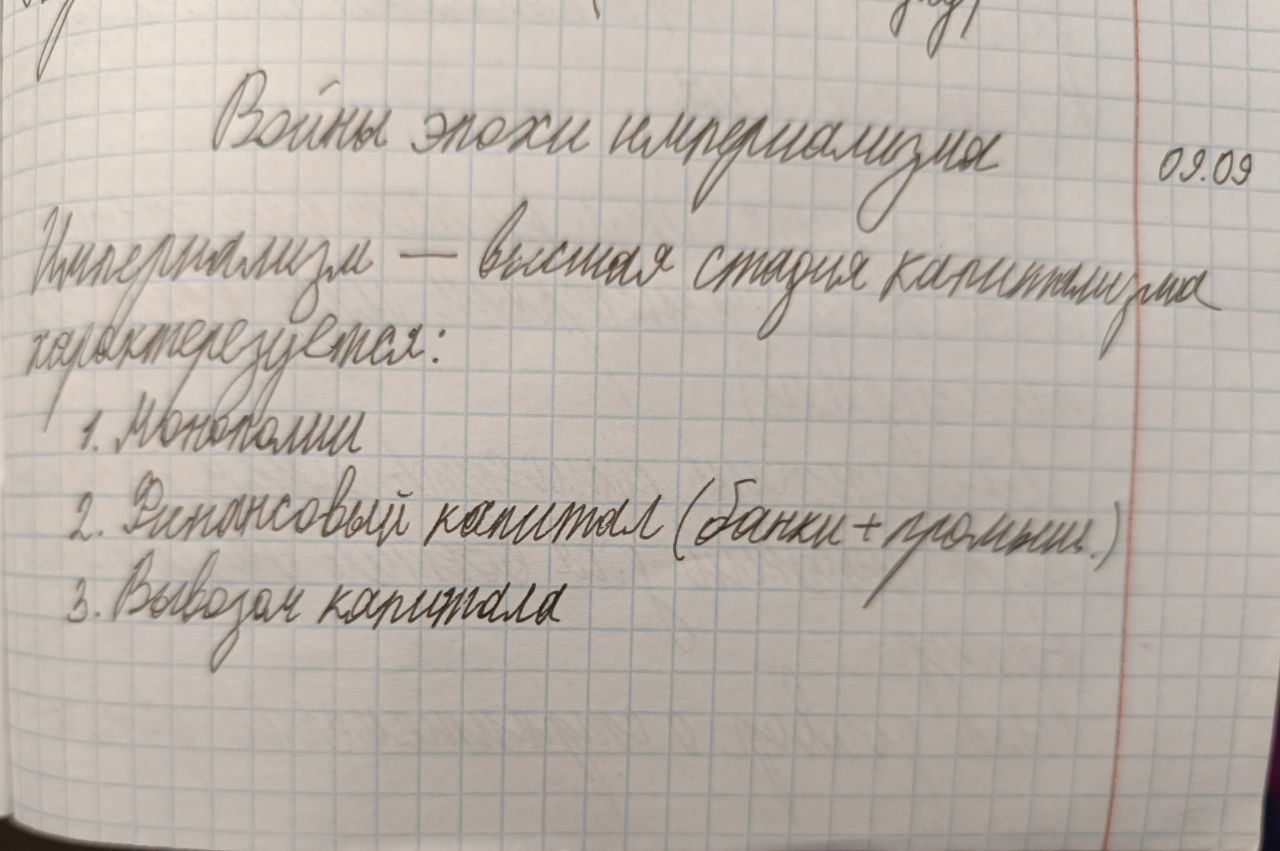 Войны эпохи империализма 09.09
Империализм — высшая стадия капитализма
характерезуется:
1. Монополии
2. Финансовый капитал (банки + промышл.)
3. Вывозом капитала